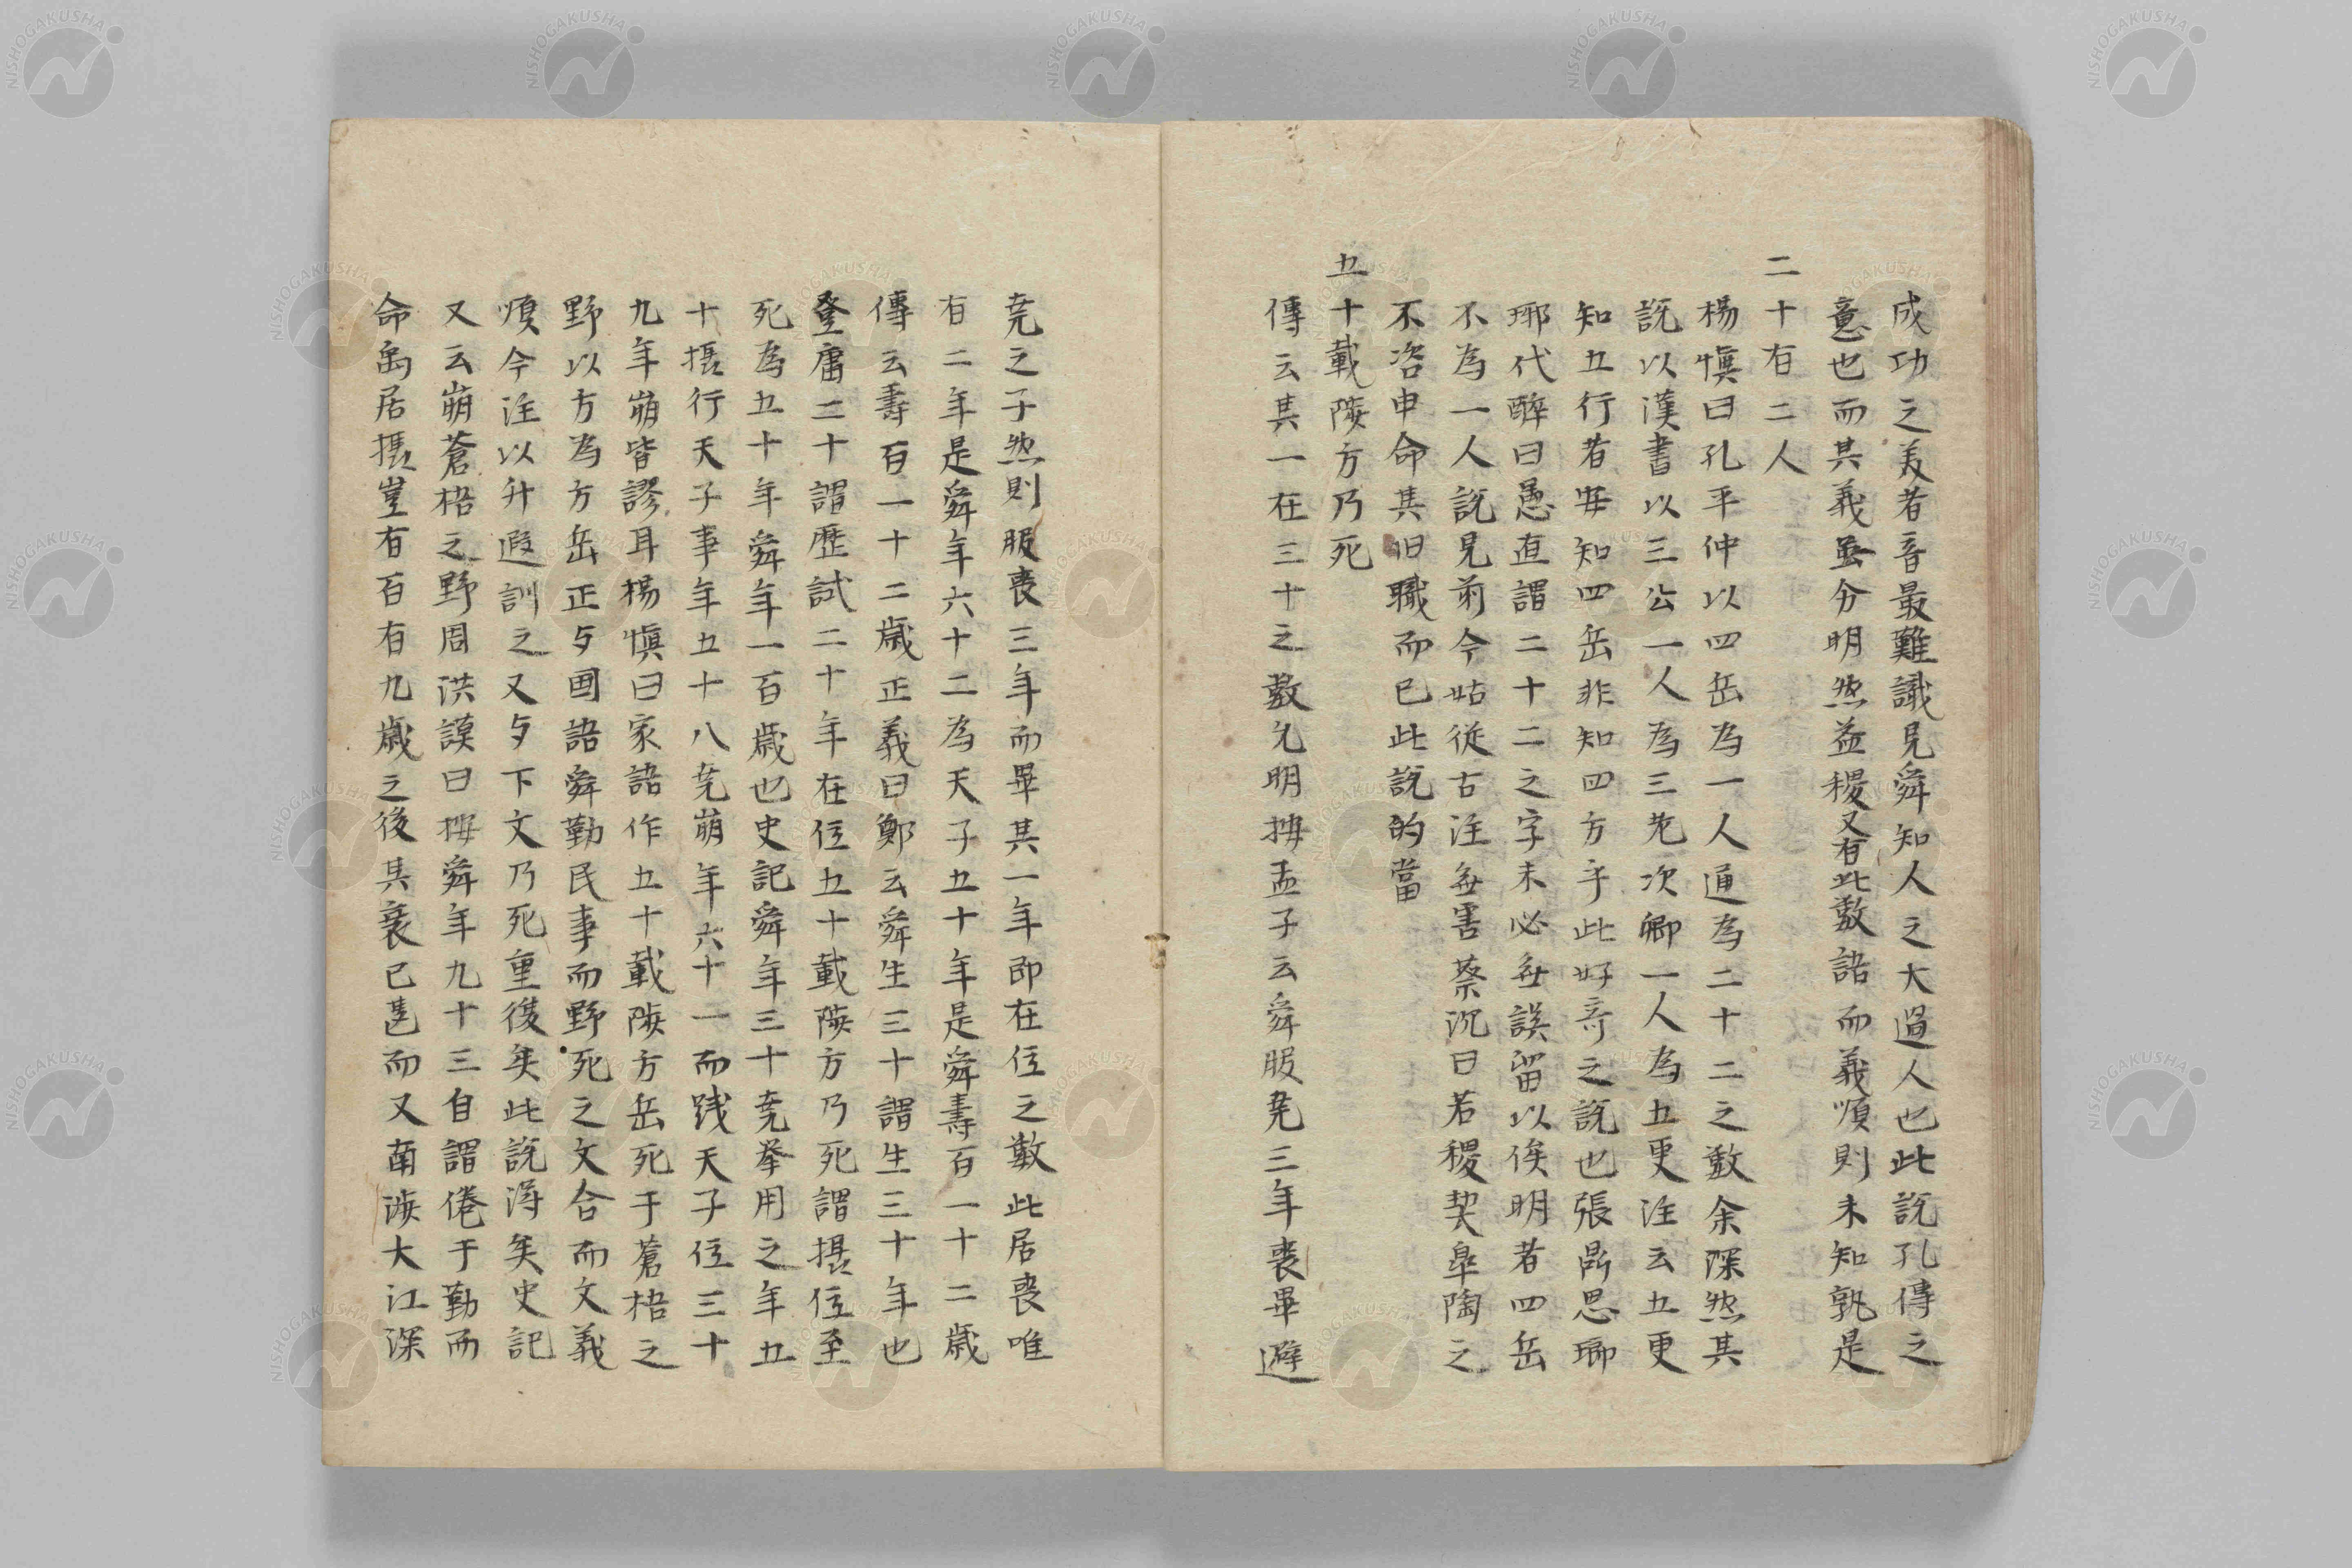 成功之美者音最難識見舜知人之大過人也此説孔傳之
意也而其義虽分明然益稷又有此數語而義順則未知孰是
二十有二人
楊慎曰孔平仲以四岳為一人通為二十二之數余深然其
説以漢書以三公一人為三老次卿一人為五更注云五更
知五行者安知四岳非知四方乎此好奇之説也張鼎思瑯
琊代醉曰愚直謂二十二之字未必無誤留以俟明者四岳
不為一人説見前今姑從古注無害蔡沉曰若稷契皐陶之
不咨申命其旧職而已此説的當
五十載陟方乃死
傳云其一在三十之數允明按孟子云舜服尭三年喪畢避
尭之子然則服喪三年而畢其一年即在位之數此居喪唯
有二年是舜年六十二為天子五十年是舜壽百一十二歳
傳云壽百一十二歳正義曰鄭云舜生三十謂生三十年也
登庸二十謂歴試二十年在位五十載陟方乃死謂摂位至
死為五十年舜年一百歳也史記舜年三十尭挙用之年五
十摂行天子事年五十八尭崩年六十一而践天子位三十
九年崩皆謬耳楊慎曰家語作五十載陟方岳死于蒼梧之
野以方為方岳正与国語舜勤民事而野死之文合而文義
順今注以升遐訓之又与下文乃死重復矣此説得矣史記
又云崩蒼梧之野周洪謨曰按舜年九十三自謂倦于勤而
命禹居摂豈有百有九歳之後其衰已甚而又南渉大江深